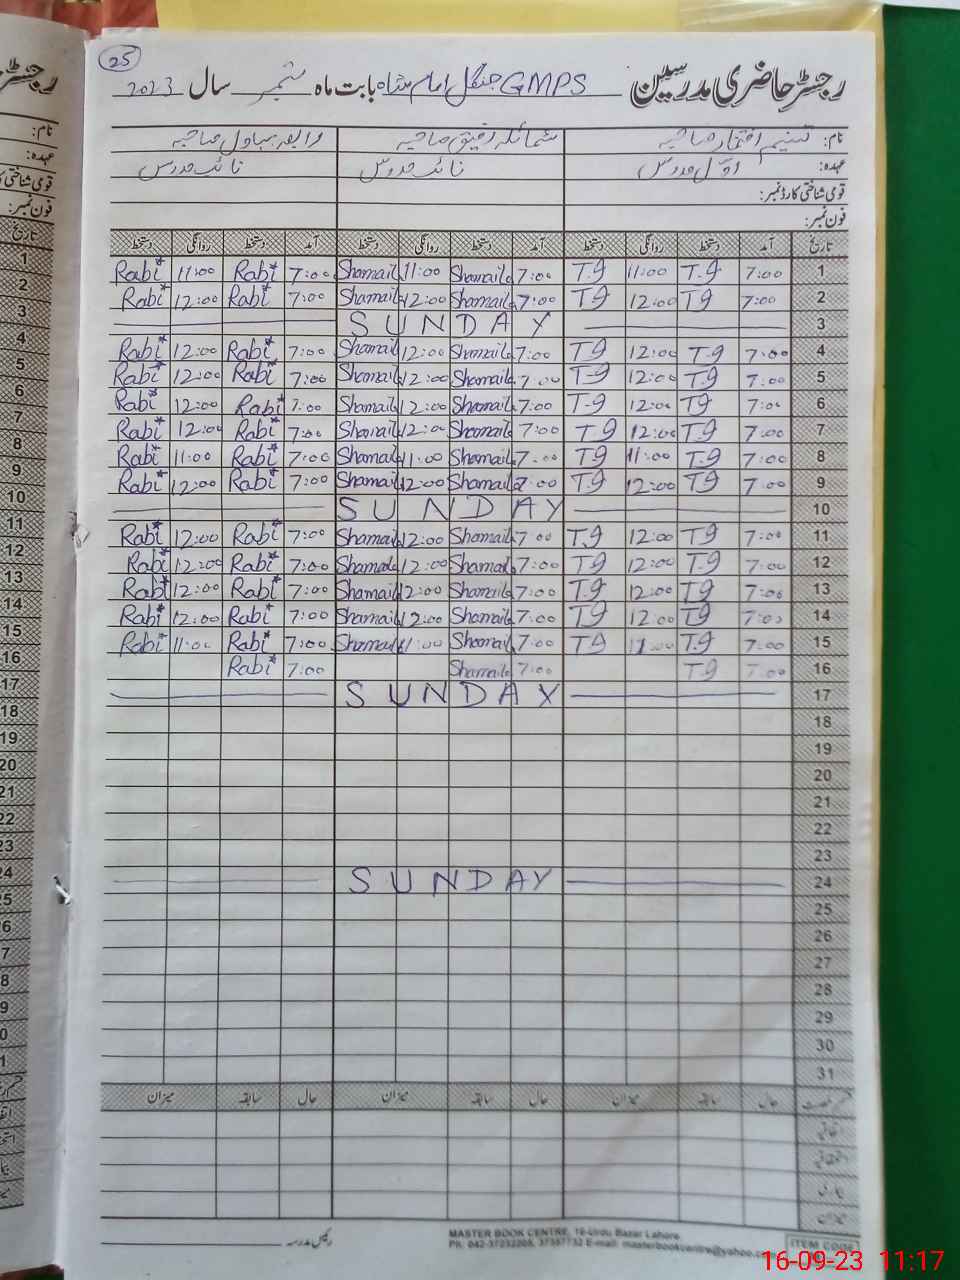 25
رجسٹر حاضری مدرسین GMPS جنگل امام شاہ بابت ماہ ستمبر سال 2023
نام: تسنیم افتخار صاحبہ شمائلہ رفیق صاحبہ رابعہ صاحبہ
عہدہ: اوّل مدرس نائب مدرس نائب مدرس
قومی شناختی کارڈ نمبر:
فون نمبر:
تاریخ آمد دستخط روانگی دستخط آمد دستخط روانگی دستخط آمد دستخط روانگی دستخط
Rabi* 11:00 Rabi* 7:00 Shamaila 11:00 Shamaila 7:00 T.g 11:00 T.g 7:00 1
Rabi* 12:00 Rabi* 7:00 Shamaila 12:00 Shamaila 7:00 Tg 12:00 Tg 7:00 2
SUNDAY 3
Rabi* 12:00 Rabi* 7:00 Shamail 12:00 Shamaila 7:00 Tg 12:00 T.g 7:00 4
Rabi* 12:00 Rabi* 7:00 Shamail 12:00 Shamaila 7:00 T-g 12:00 Tg 7:00 5
Rabi* 12:00 Rabi* 7:00 Shamaila 12:00 Shamaila 7:00 T-g 12:00 Tg 7:00 6
Rabi* 12:00 Rabi* 7:00 Shamail 12:00 Shamaila 7:00 Tg 12:00 T.g 7:00 7
Rabi* 11:00 Rabi* 7:00 Shamail 11:00 Shamaila 7:00 Tg 11:00 T.g 7:00 8
Rabi* 12:00 Rabi* 7:00 Shamaila 12:00 Shamaila 7:00 Tg 12:00 Tg 7:00 9
SUNDAY 10
Rabi* 12:00 Rabi* 7:00 Shamaila 12:00 Shamaila 7:00 T.g 12:00 Tg 7:00 11
Rabi* 12:00 Rabi* 7:00 Shamaila 12:00 Shamaila 7:00 Tg 12:00 T.g 7:00 12
Rabi* 12:00 Rabi* 7:00 Shamaila 12:00 Shamaila 7:00 T.g 12:00 Tg 7:00 13
Rabi* 12:00 Rabi* 7:00 Shamaila 12:00 Shamaila 7:00 Tg 12:00 Tg 7:00 14
Rabi* 11:00 Rabi* 7:00 Shamaila 11:00 Shamaila 7:00 Tg 11:00 T.g 7:00 15
Rabi* 7:00 Shamaila 7:00 T.g 7:00 16
SUNDAY 17
18
19
20
21
22
23
SUNDAY 24
25
26
27
28
29
30
31
حال سابقہ میزان حال سابقہ میزان حال سابقہ میزان
اتفاقیہ
بیماری
میزان
رئیس مدرسہ
MASTER BOOK CENTRE, 19-Urdu Bazar Lahore.
Ph: 042-37232205, E-mail: masterbookcentre@yahoo.
ITEM CODE
16-09-23 11:17